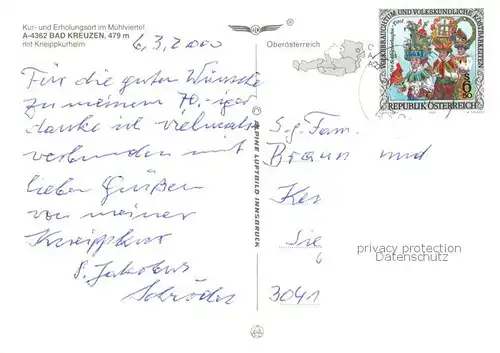 Kur- und Erholungsort im Mühlviertel
A-4362 BAD KREUZEN, 479 m
mit Kneippkurheim
6.3.2000
Für die guten Wünsche
zu meinem 70.-iger
danke ich vielmals
verbunden mit
lieben Grüßen
von meiner
Kneippkur
Schröder
ALPINE LUFTBILD INNSBRUCK
Oberösterreich
VOLKSBRAUCHTUM UND VOLKSKUNDLICHE KOSTBARKEITEN
S 6.50
REPUBLIK ÖSTERREICH
S.g. Fam.
Braun und
Ke
Sie
3041
privacy protection
Datenschutz